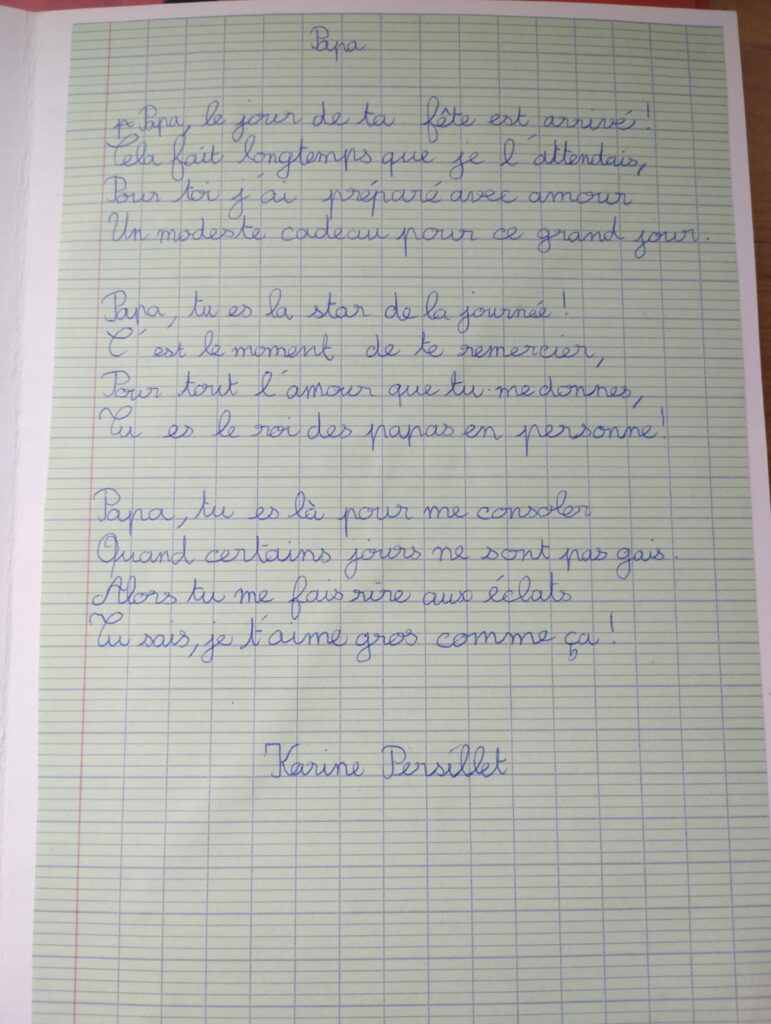 Papa
Papa, le jour de ta fête est arrivé !
Cela fait longtemps que je l'attendais,
Pour toi j'ai préparé avec amour
Un modeste cadeau pour ce grand jour.
Papa, tu es la star de la journée !
C'est le moment de te remercier,
Pour tout l'amour que tu me donnes,
Tu es le roi des papas en personne !
Papa, tu es là pour me consoler
Quand certains jours ne sont pas gais.
Alors tu me fais rire aux éclats
Tu sais, je t'aime gros comme ça !
Karine Persillet